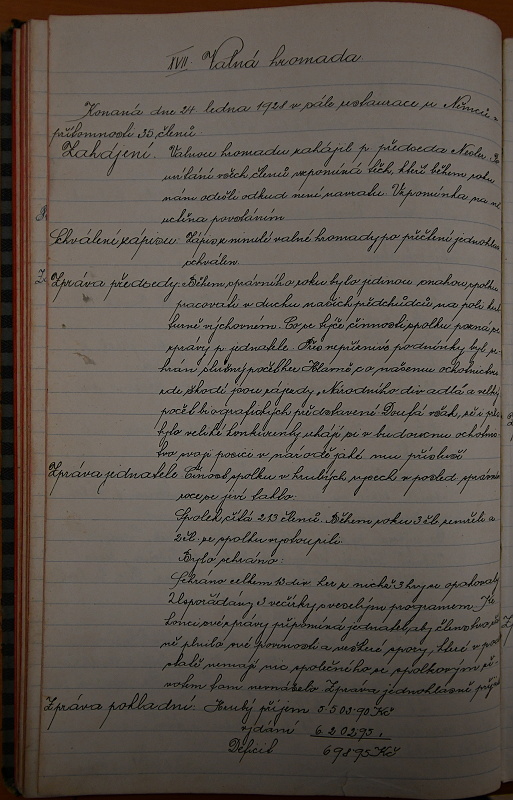 XVII. Valná hromada.
Konaná dne 24 ledna 1928 v sále restaurace u Němců v
přítomnosti 35 členů.
Zahájení. Valnou hromadu zahájil p. předseda Nesler. Po
uvítání všech členů vzpomíná těch, kteří během roku
nám odešli odkud není návratu. Vzpomínka na ně
uctěna povstáním.
Schválení zápisu: Zápis z minulé valné hromady po přečtení jednohlas.
schválen.
Zpráva předsedy: Během správního roku bylo jedinou snahou spolku
pracovati v duchu našich předchůdců na poli kul
turně výchovném. Co se týče činnosti spolku pozná se
zprávy p. jednatele. Přes nepříznivé podmínky byl se
hrán slušný počet her. Hlavně, co našemu ochotnictvu
zde škodí jsou zájezdy „Národního divadla" a velký
počet biografických představení. Doufá však, že i přes
tyto veliké konkurenty uhájí si v budoucnu ochotnic
tvo svoji posici v národě jaké mu přísluší.
Zpráva jednatele. Činnost spolku v hrubých rysech v posled. správním
roce se jeví takto:
Spolek čítá 213 členů. Během roku 3 čl. zemřeli a
2 čl. ze spolku vystoupili.
Bylo sehráno:
Sehráno celkem 13 div. her z nichž 3 hry se opakovaly
Uspořádány 3 večírky s veselým programem. Ke
konci své zprávy připomíná jednatel, aby členstvo
ně plnilo své povinnosti a veškeré spory, které v pod
statě nemají nic společného se spolkovým
tam nevnášelo. Zpráva jednohlasně přijata
Zpráva pokladní: Hrubý příjem 5 503·90 Kč
vydání 6 202 95 „
Deficit 698 95 Kč